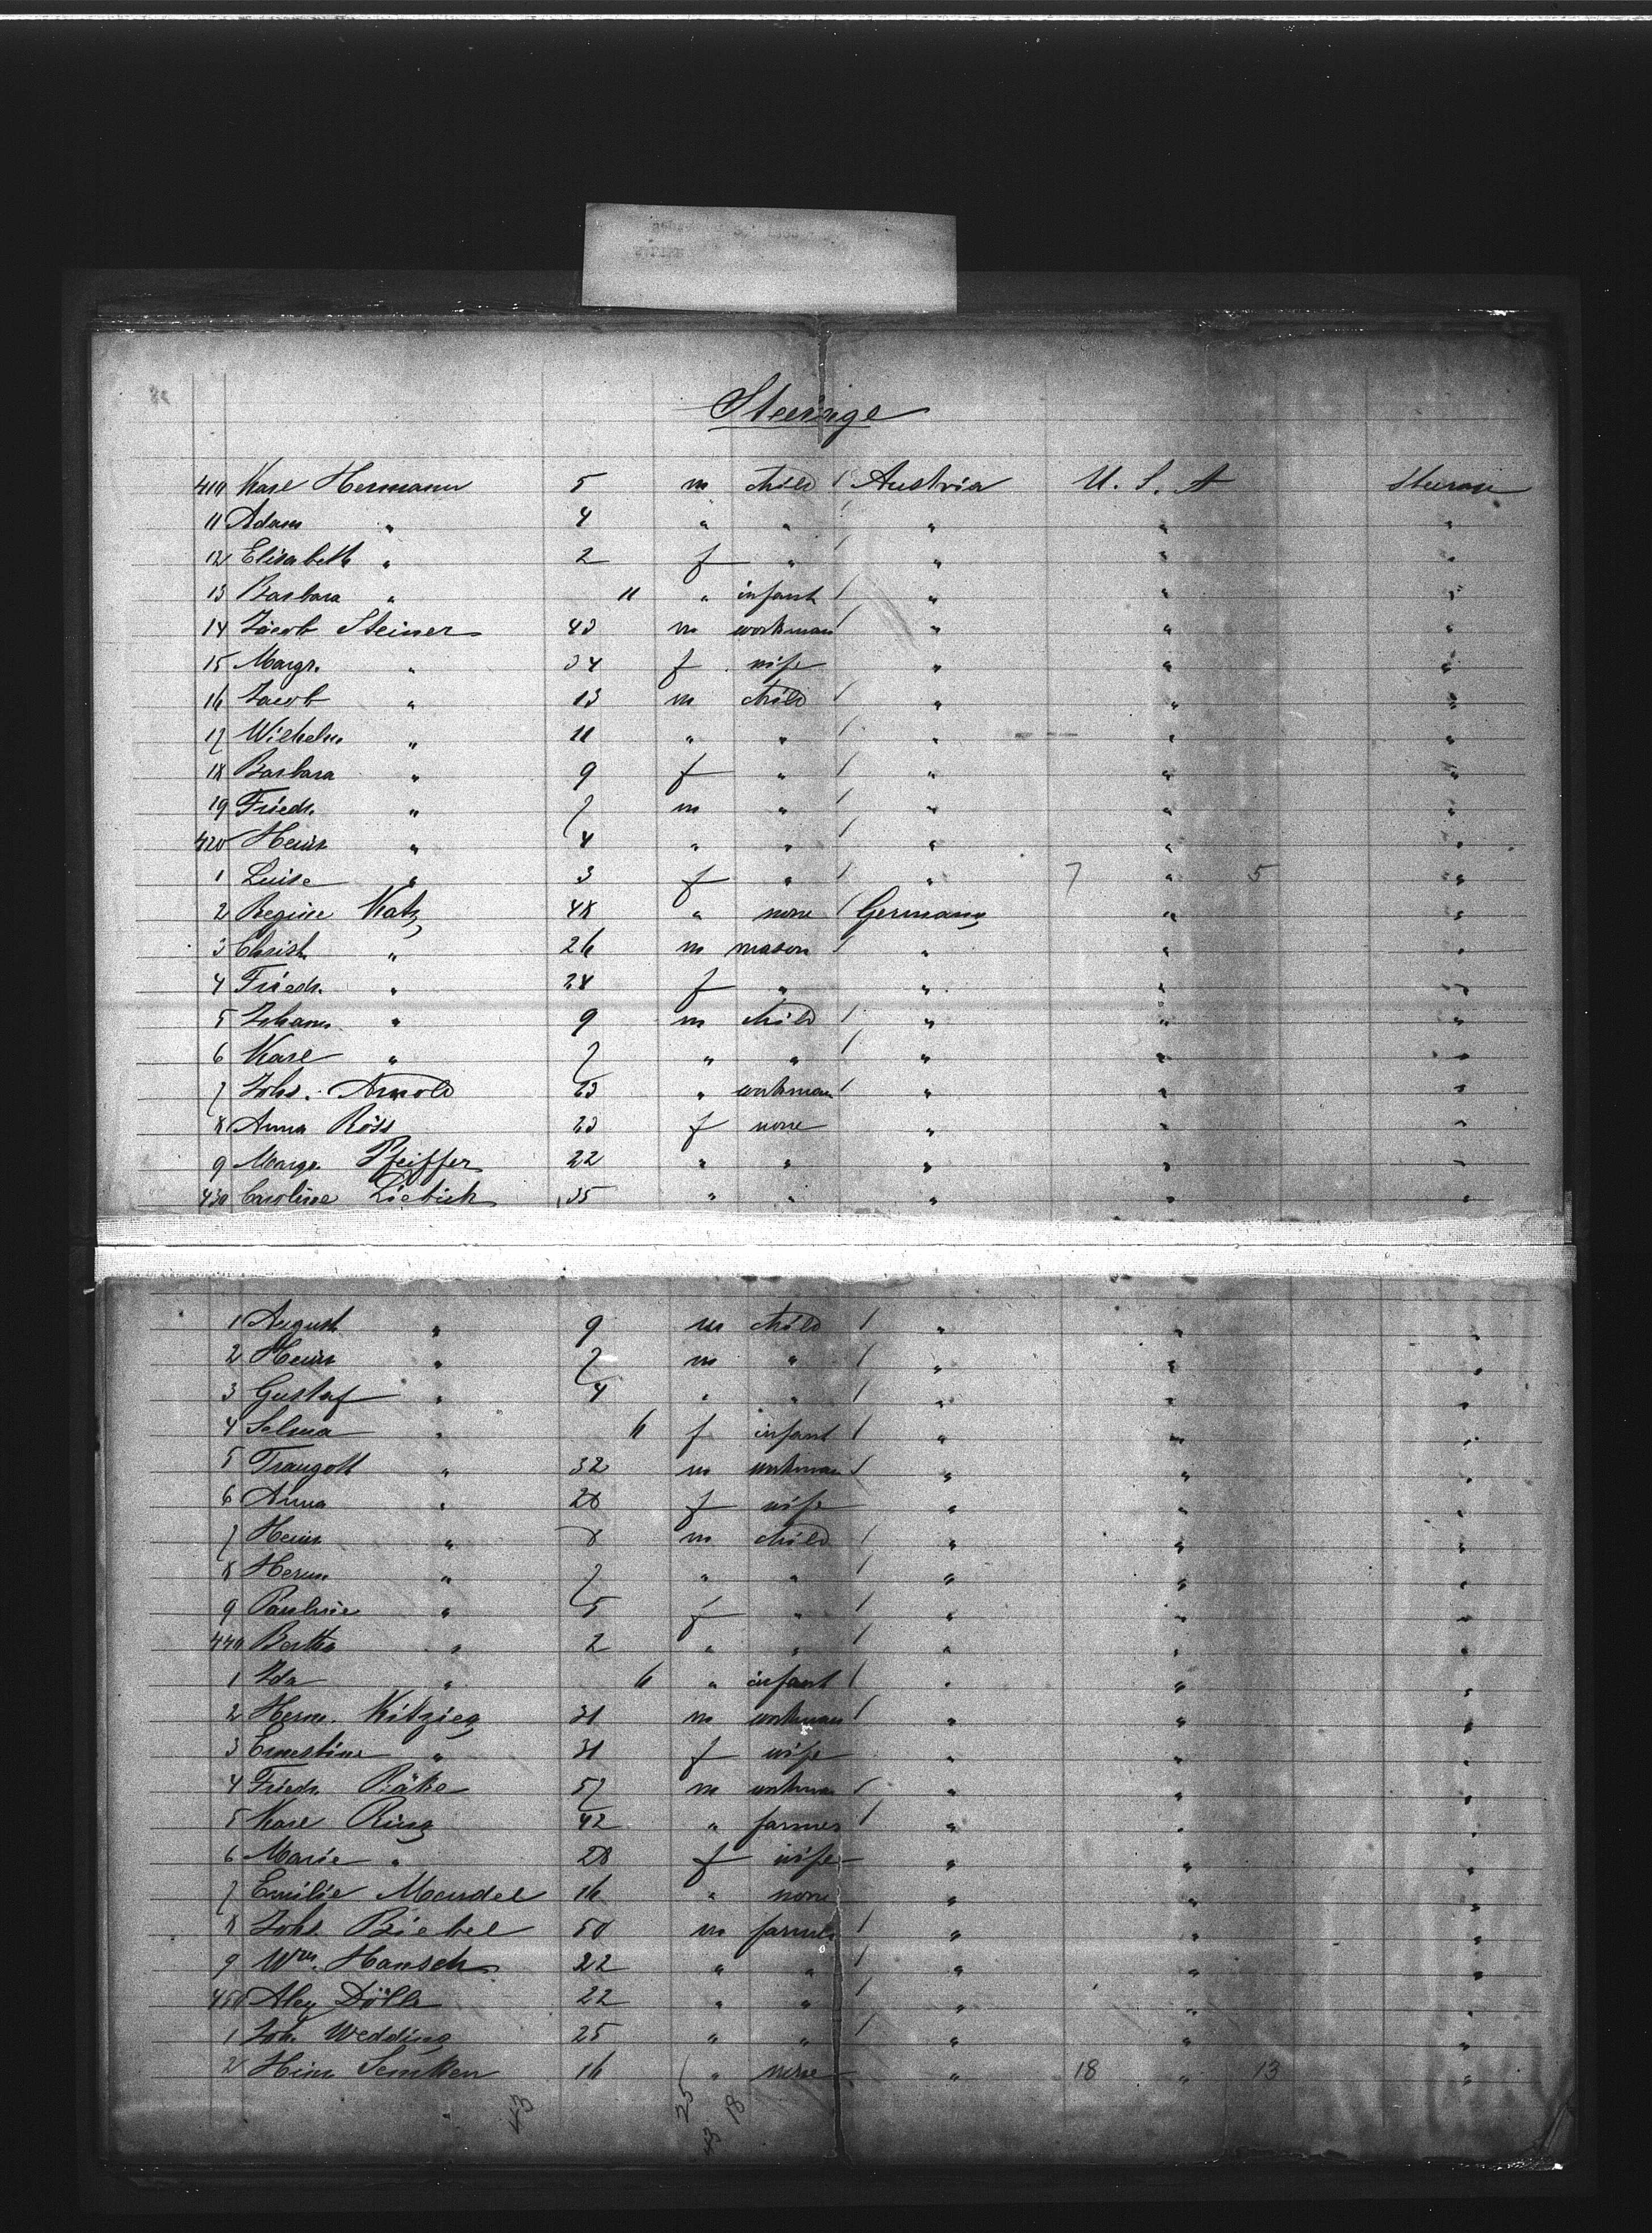 Steerage
410 Karl Hermann 5 m child / Austria U. S. A Steerage
11 Adam " 4 " " / " " "
12 Elisabeth " 2 f " / " " "
13 Barbara " 11 " infant / " " "
14 Jacob Steiner 43 m workman / " " "
15 Margr. " 34 f wife " " "
16 Jacob " 13 m child / " " "
17 Wilhelm " 11 " " / " " "
18 Barbara " 9 f " / " " "
19 Friedr. " 7 m " / " " "
420 Heinr " 4 " " / " " "
1 Luise " 3 f " / " 7 " 5 "
2 Regine Katz 48 " none / Germany " "
3 Christ " 26 m mason / " " "
4 Friedr. " 28 f " " " "
5 Johann " 9 m child / " " "
6 Karl " 7 " " / " " "
7 Johs. Arnold 23 " workman / " " "
8 Anna Röss 23 f none " " "
9 Margr. Pfeiffer 22 " " " " "
430 Caroline Liebich 35 " " " " "
1 August " 9 m child / " " "
2 Heinr " 7 m " / " " "
3 Gustaf " 4 " " / " " "
4 Selma " 6 f infant / " " "
5 Traugott " 32 m workman / " " "
6 Anna " 28 f wife " " "
7 Heinr " 8 m child / " " "
8 Herm. " 7 " " / " " "
9 Pauline " 5 f " / " " "
440 Bertha " 2 " " / " " "
1 Ida " 6 " infant / " " "
2 Herm. Kitzieg 31 m workman / " " "
3 Ernestine " 31 f wife " " "
4 Friedr. Räke 57 m workman / " " "
5 Karl Ring 42 " farmer / " " "
6 Marie " 28 f wife " " "
7 Emilie Mandel 16 " none " " "
8 Johs. Biebel 50 m farmer / " " "
9 Wm. Hansch 22 " " / " " "
450 Alex Dölle 22 " " / " " "
1 Joh. Wedding 25 " " / " " "
2 Hinr Semken 16 " none " 18 " 13 "
43 25 18
43